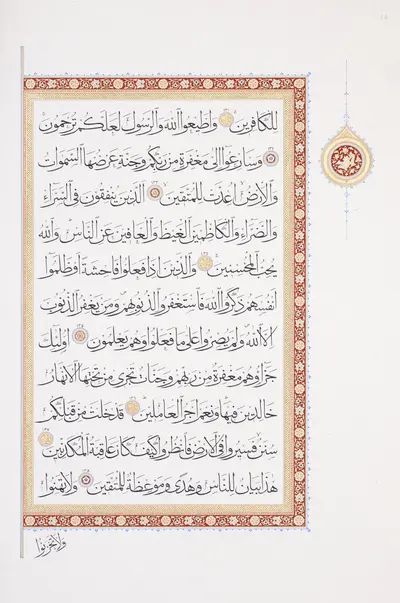 للكافرين وأطيعوا الله والرسول لعلكم ترحمون
وسارعوا إلى مغفرة من ربكم وجنة عرضها السموات
والأرض أعدت للمتقين الذين ينفقون في السراء
والضراء والكاظمين الغيظ والعافين عن الناس والله
يحب المحسنين والذين إذا فعلوا فاحشة أو ظلموا
أنفسهم ذكروا الله فاستغفروا لذنوبهم ومن يغفر الذنوب
إلا الله ولم يصروا على ما فعلوا وهم يعلمون أولئك
جزاؤهم مغفرة من ربهم وجنات تجري من تحتها الأنهار
خالدين فيها ونعم أجر العاملين قد خلت من قبلكم
سنن فسيروا في الأرض فانظروا كيف كان عاقبة المكذبين
هذا بيان للناس وهدى وموعظة للمتقين ولا تهنوا
ولا تحزنوا